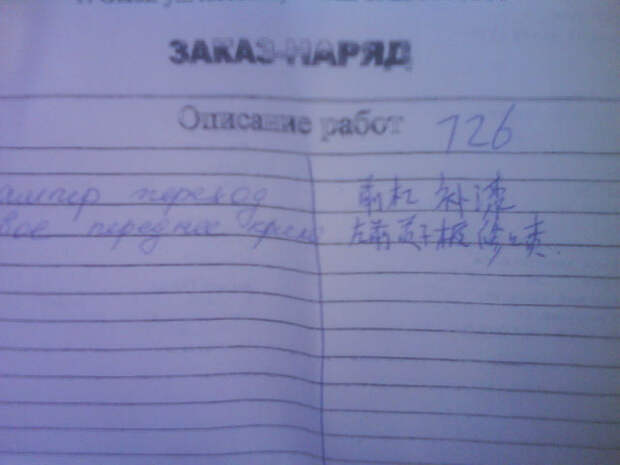 ЗАКАЗ-НАРЯД
Описание работ 126
ампер переход 前杠 补漆
вое переднее крыло 左前 板 修